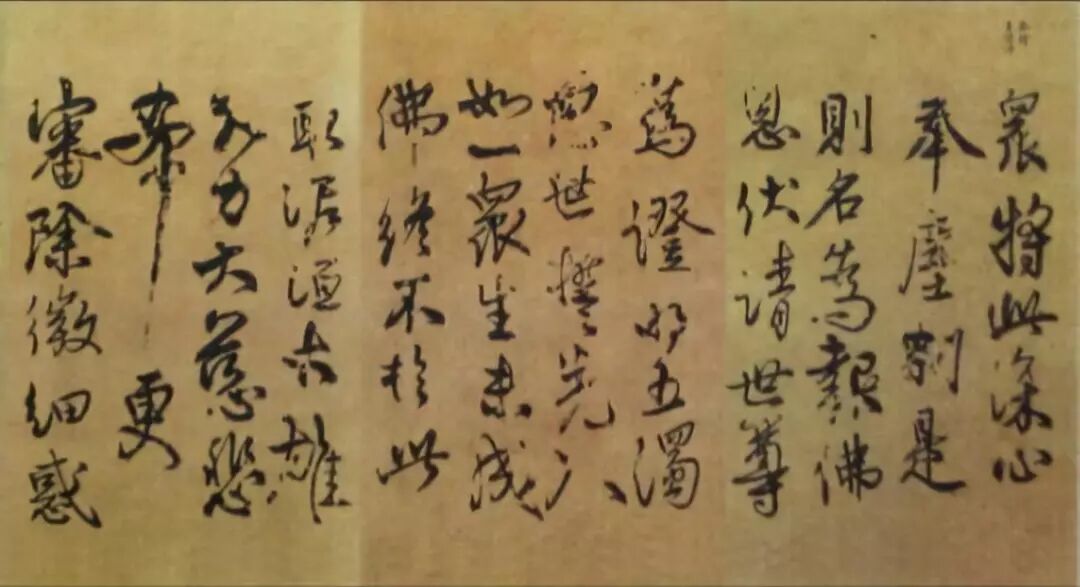 衆將此深心
奉塵剎是
則名為報佛
恩伏請世尊
為證明五濁
惡世誓先入
如一衆生未成
佛終不於此
取泥洹大雄
大力大慈悲
希更
審除微細惑